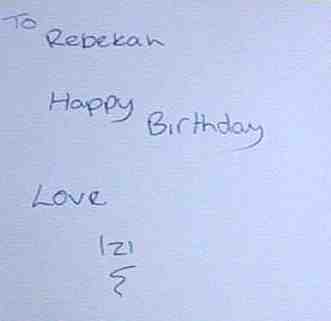 To
Rebekah
Happy
Birthday
Love
Izi